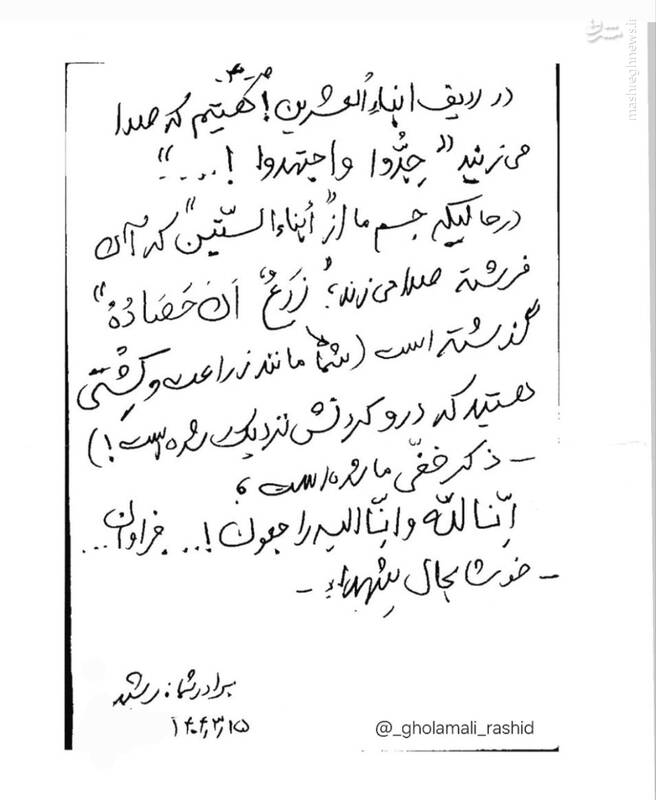 -۳-
در ردیف ابناءُ العشرین! هستیم که صدا
می‌زنند "جِدُّوا واجتهدوا !...."
درحالیکه جسم ما از "أبناء السّتّین" که آن
فرشته صدا می‌زند؛ "زَرَعٌ اَنَ حَصَادُهُ"
گذشته است (شما مانند زراعت و کِشتی
هستید که درو کردنش نزدیک شده است!)
- ذکر خفّی ما شده است؛
اِنّا لله و اِنّا الیه راجعون !... فراوان...
- خوشا بحال شهداء -
برادر شما: رشید
۱۴۰۴,۳,۱۵
@_gholamali_rashid
mashreghnews.ir